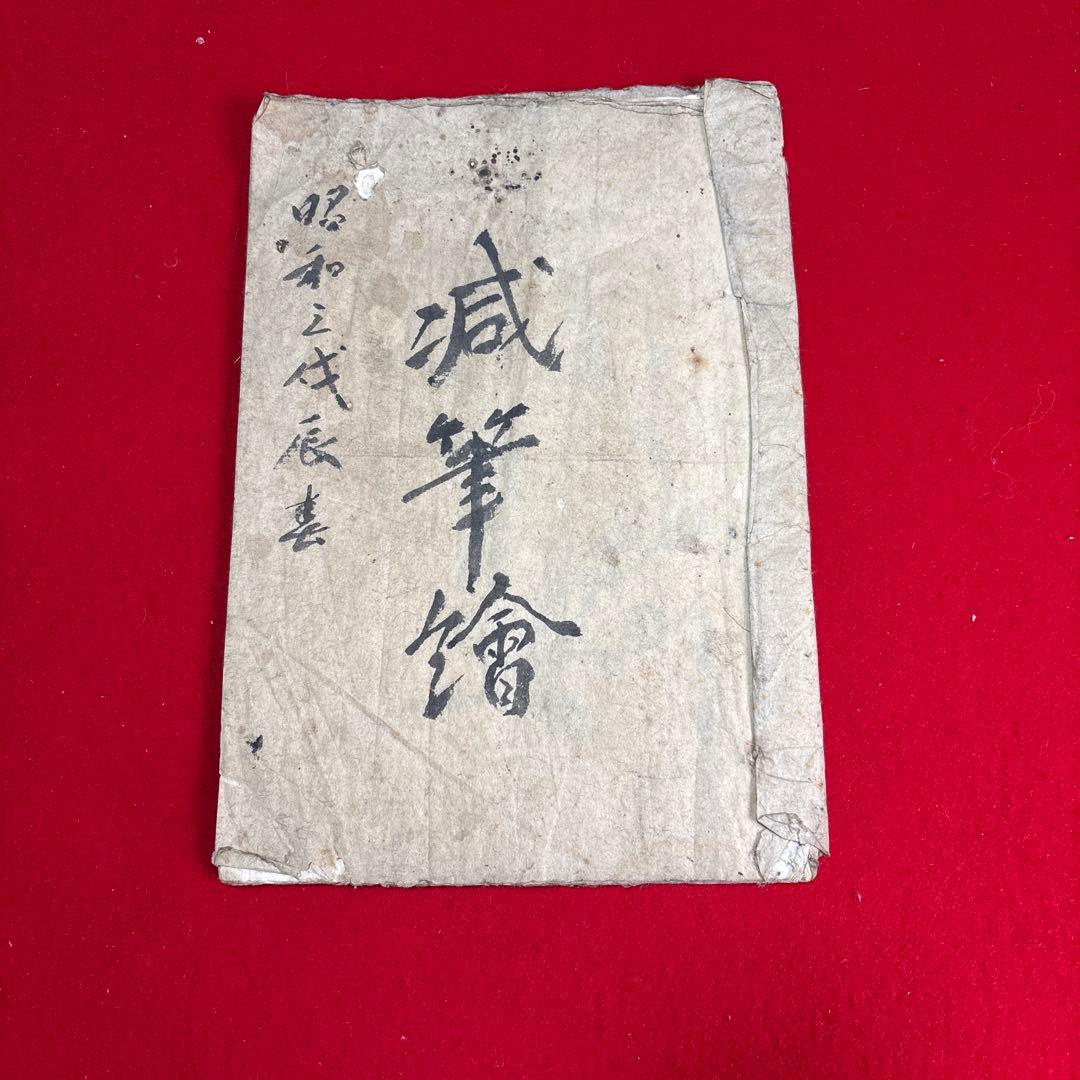 減筆繪
昭和三戊辰春